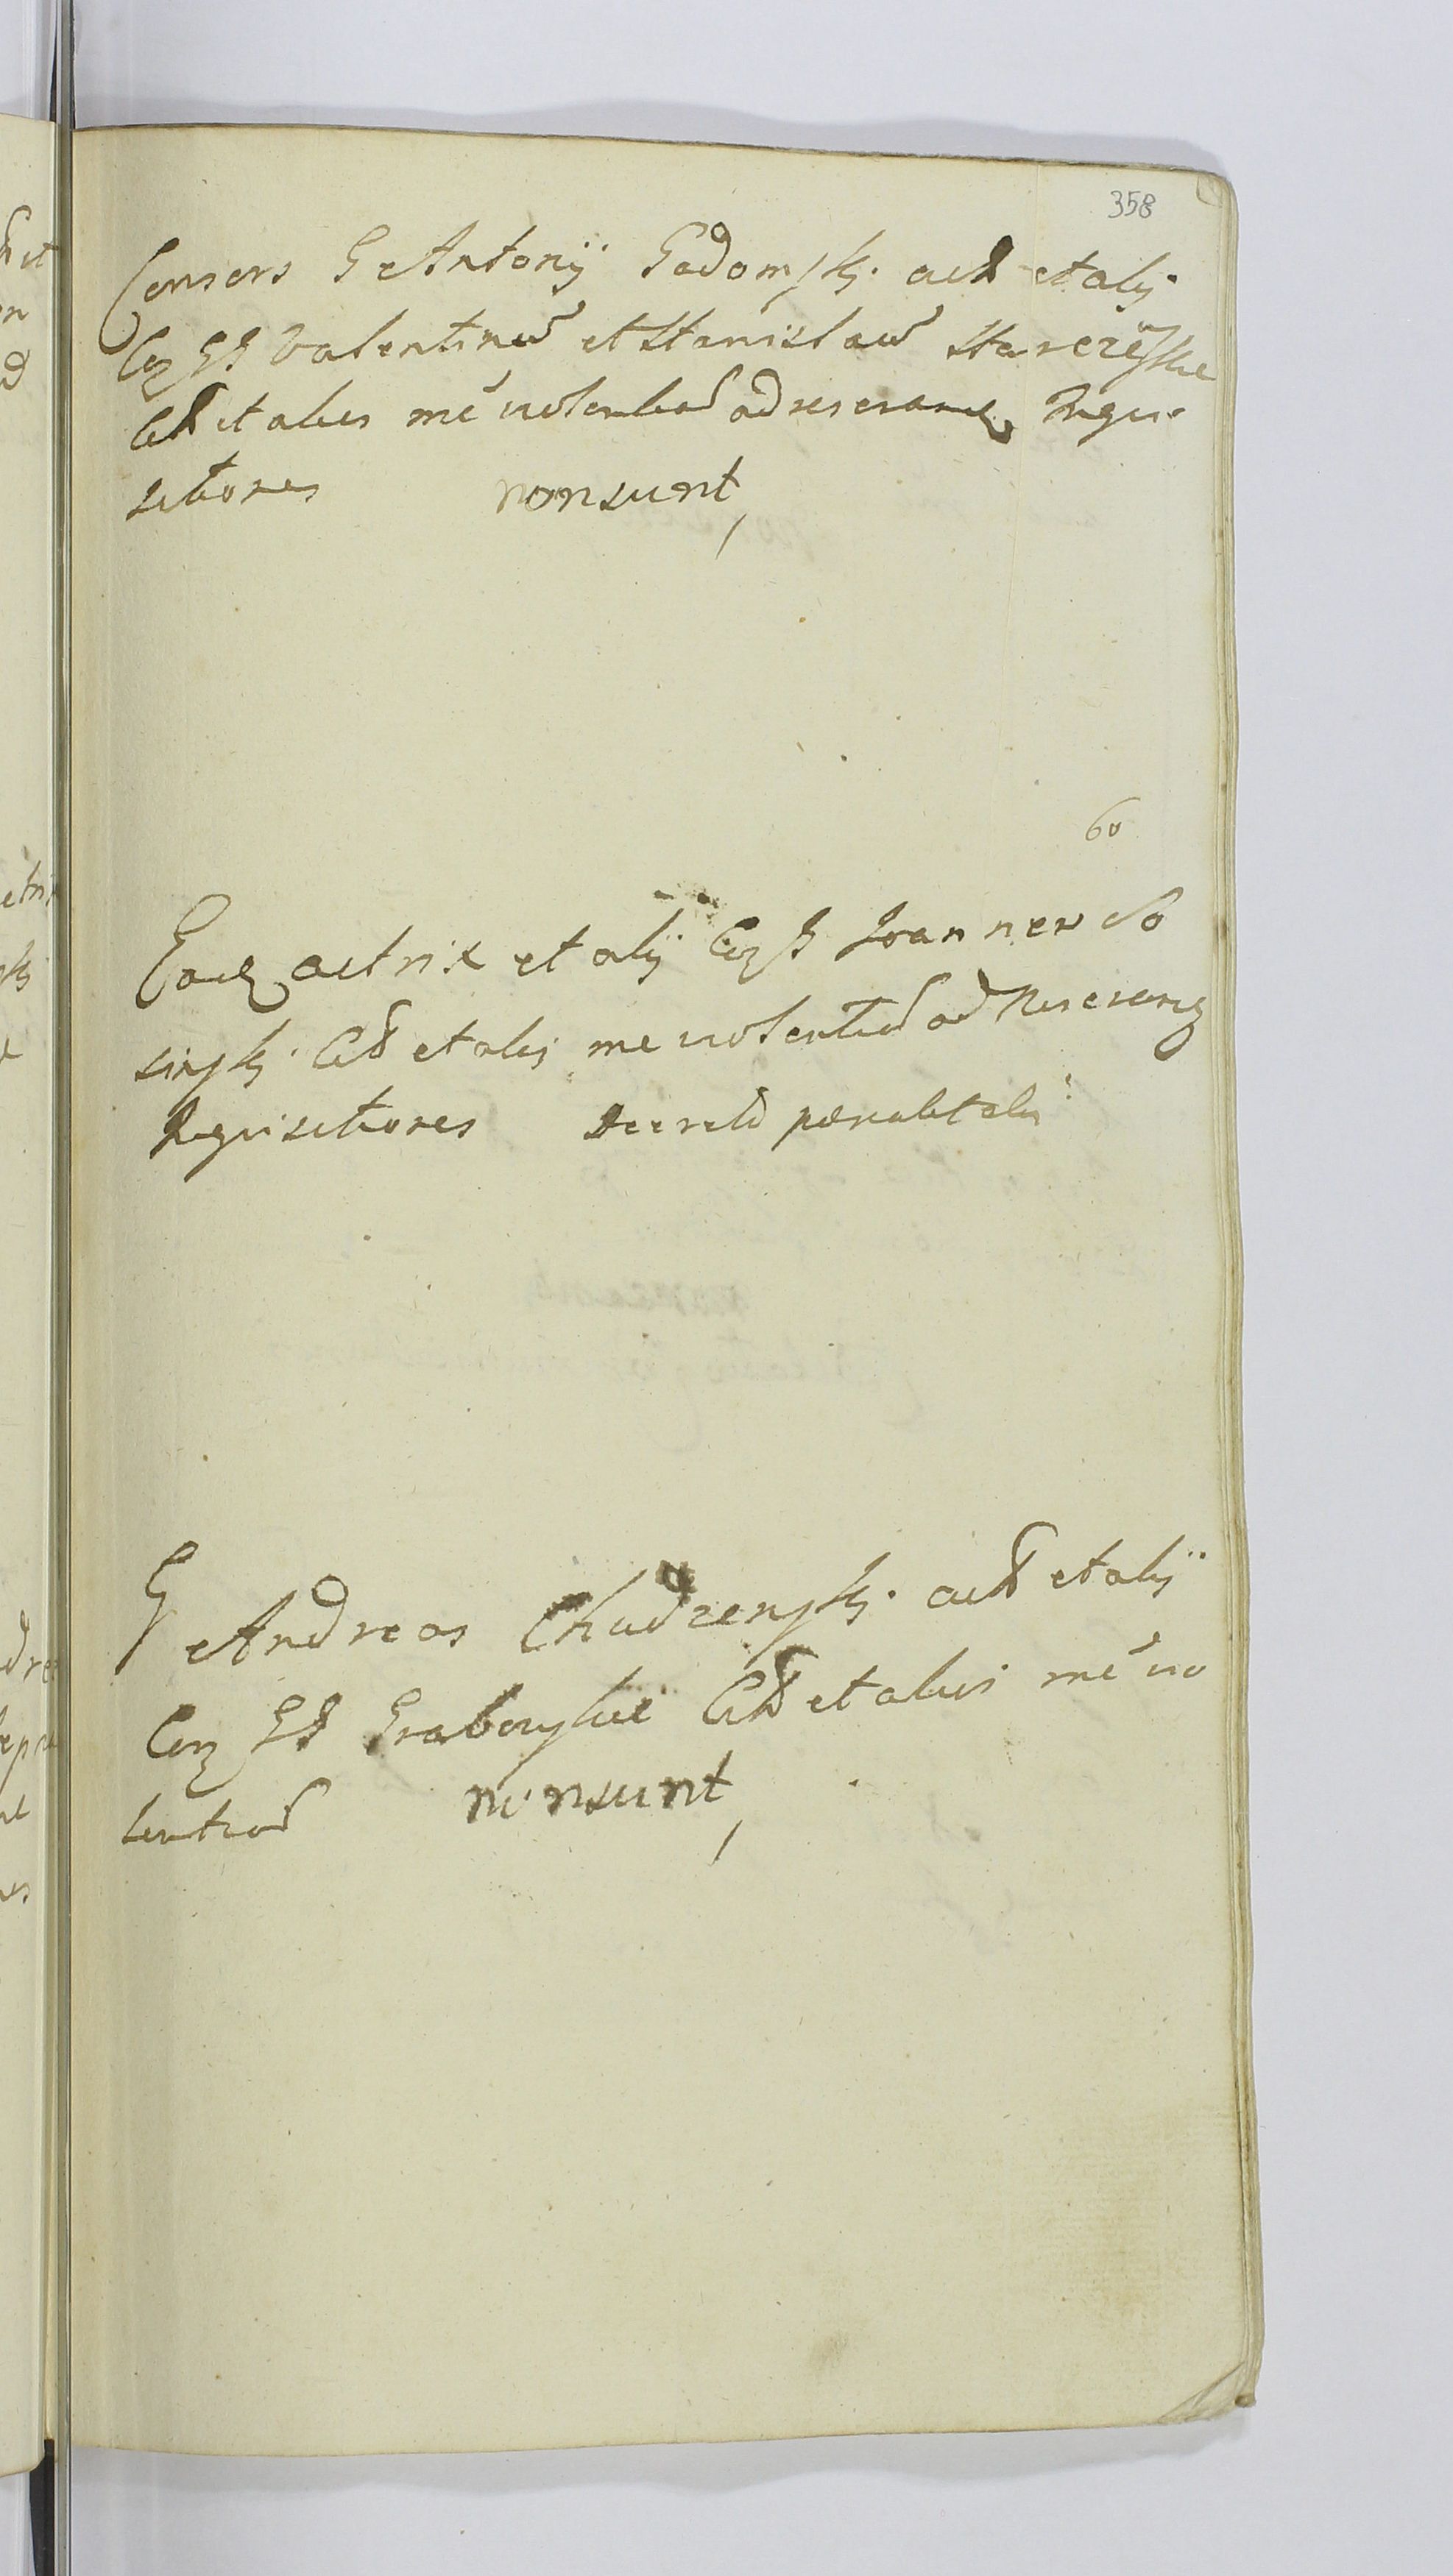 358
Consors G Antonij Gadomski act et alij
Coz GG Valentinu et Stanislau Starczewskie
Cit et alios me violentiad ad reserang Inqui
sitiones nonsunt
60
Eadz actrix et alij Coz G Joannem So
sinski Cit et alios me violentiad ad Reserang
Inquisitiones Decretu paenale talii
G Andreas Chudzenski act et alij
Coz GG Grabowskie Cit et alios me vio
lentiad nonsunt